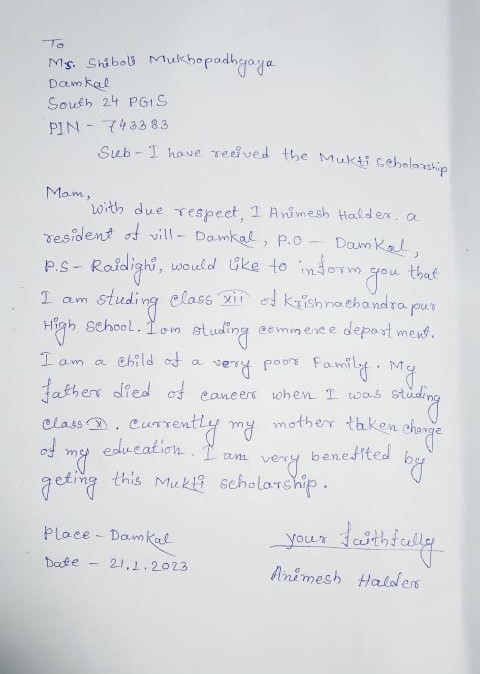 To
Ms. Shiboli Mukhopadhyaya
Damkal
South 24 PGIS
PIN - 743383
Sub - I have reeived the Mukti scholarship
Mam,
With due respect, I Animesh Halder. a
resident of vill - Damkal, P.O - Damkal,
P.S - Raidighi, would like to inform you that
I am studing class xii of Krishnachandrapur
High School. I am studing commerce department.
I am a child of a very poor Family. My
father died of cancer when I was studing
class X. currently my mother taken charge
of my education. I am very benefited by
geting this Mukti scholarship.
Place - Damkal
Date - 21.1.2023
your faithfully
Animesh Halder